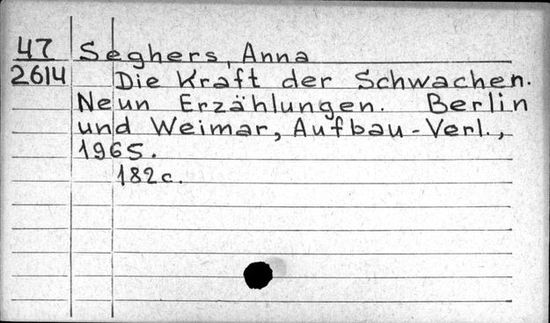 47 Seghers, Anna
2614 Die Kraft der Schwachen.
Neun Erzählungen. Berlin
und Weimar, Aufbau-Verl.,
1965.
182c.